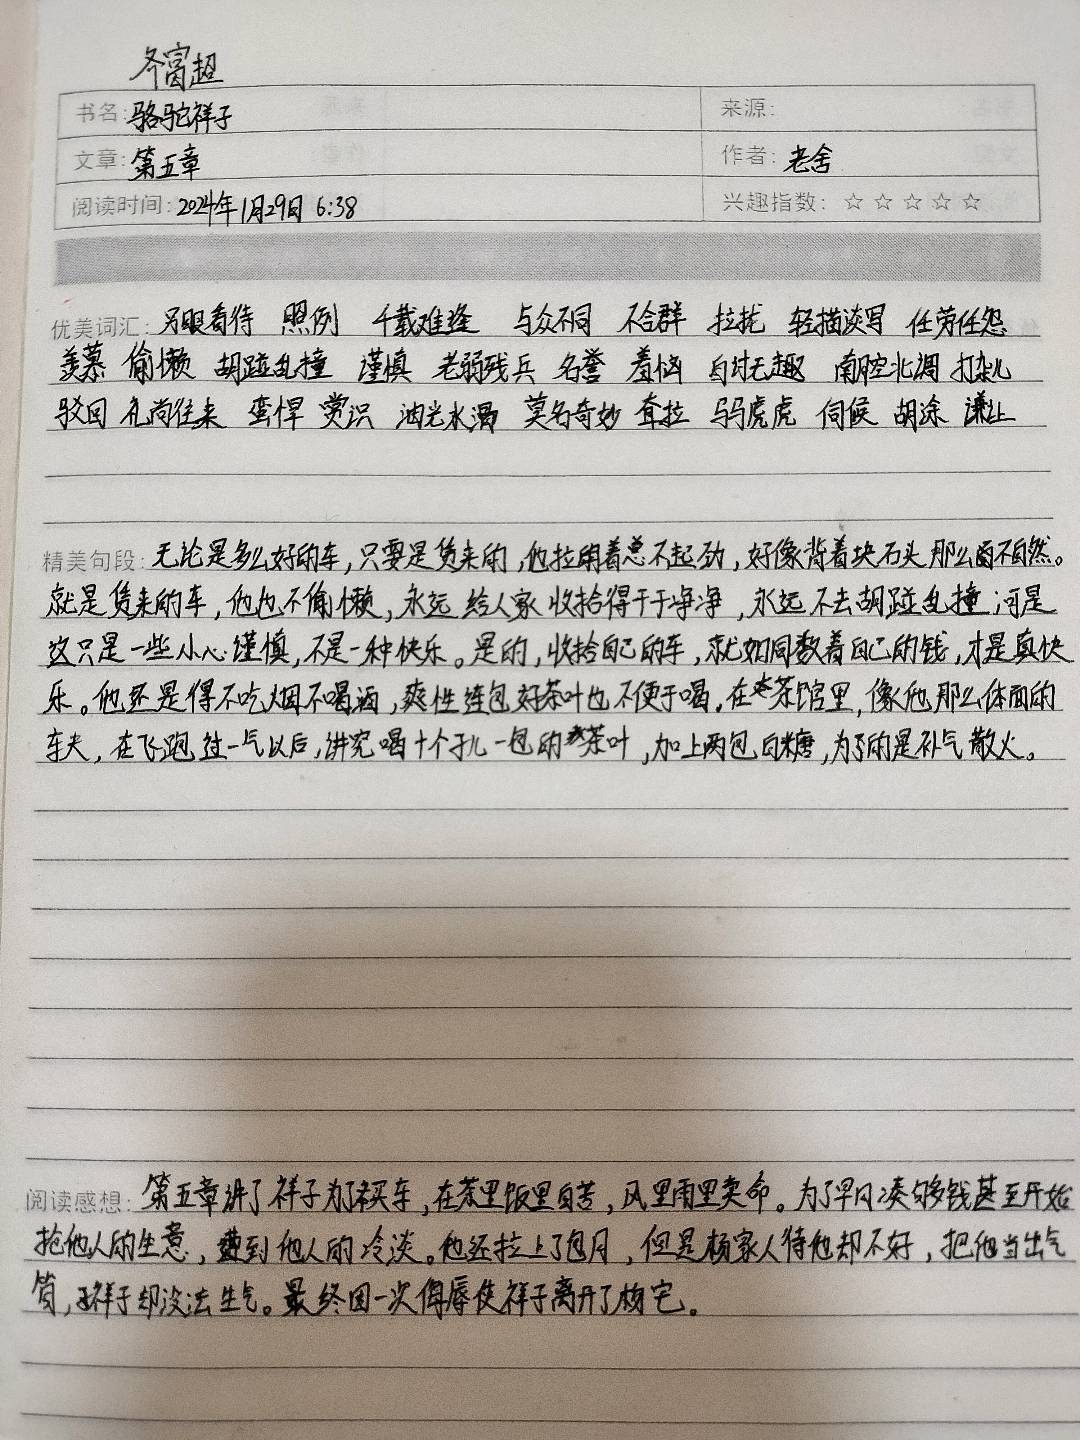 佟富超
书名: 骆驼祥子 来源:
文章: 第五章 作者: 老舍
阅读时间: 2024年1月29日 6:38 兴趣指数: ☆☆☆☆☆
优美词汇: 另眼看待 照例 千载难逢 与众不同 不合群 拉拢 轻描淡写 任劳任怨
羡慕 偷懒 胡蹅乱撞 谨慎 老弱残兵 名誉 羞恼 自讨无趣 南腔北调 打杂儿
驳回 礼尚往来 蛮悍 赏识 油光水滑 莫名奇妙 耷拉 马马虎虎 伺候 胡涂 谦让
精美句段: 无论是多么好的车,只要是赁来的,他拉着总不起劲,好像背着块石头那么不自然。
就是赁来的车,他也不偷懒,永远给人家收拾得干干净净,永远不去胡蹅乱撞;可是
这只是一些小心谨慎,不是一种快乐。是的,收拾自己的车,就如同数着自己的钱,才是真快
乐。他还是得不吃烟不喝酒,爽性连包好茶叶也不便于喝。在茶馆里,像他那么体面的
车夫,在飞跑过一气以后,讲究喝十个子儿一包的茶叶,加上两包白糖,为了的是补气散火。
阅读感想: 第五章讲了祥子为了买车,在茶里饭里自苦,风里雨里卖命。为了早日凑够钱甚至开始
抢他人的生意,遭到他人的冷淡。他还拉上了包月,但是杨家人待他却不好,把他当出气
筒,祥子却没法生气。最终因一次侮辱使祥子离开了杨宅。